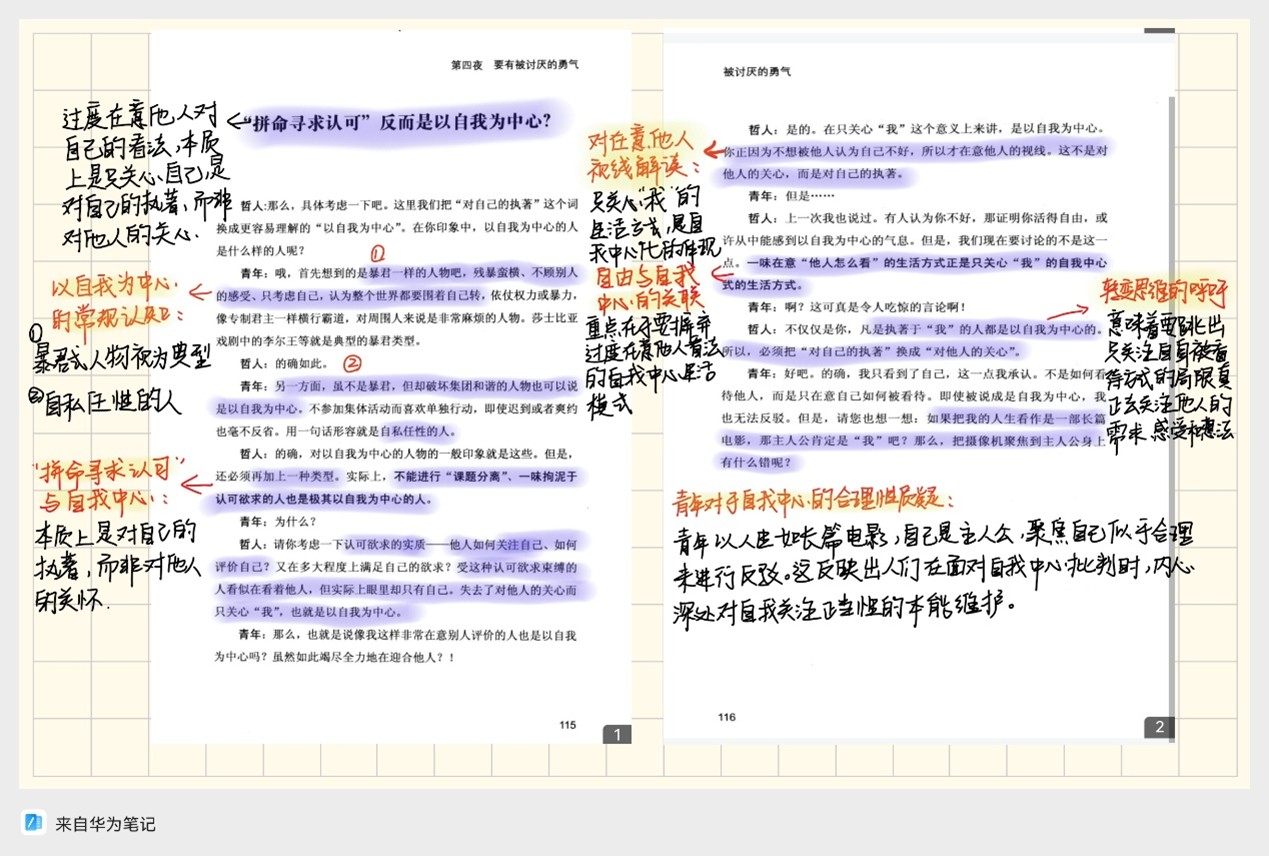 第四夜 要有被讨厌的勇气
“拼命寻求认可”反而是以自我为中心？
过度在意他人对
自己的看法,本质
上是只关心自己,是
对自己的执着,而非
对他人的关心.
哲人:那么，具体考虑一下吧。这里我们把“对自己的执著”这个词
换成更容易理解的“以自我为中心”。在你印象中，以自我为中心的人
是什么样的人呢？
①
青年：哦，首先想到的是暴君一样的人物吧，残暴蛮横、不顾别人
的感受、只考虑自己，认为整个世界都要围着自己转，依仗权力或暴力，
像专制君主一样横行霸道，对周围人来说是非常麻烦的人物。莎士比亚
戏剧中的李尔王等就是典型的暴君类型。
哲人：的确如此。
②
青年：另一方面，虽不是暴君，但却破坏集团和谐的人物也可以说
是以自我为中心，不参加集体活动而喜欢单独行动，即使迟到或者爽约
也毫不反省。用一句话形容就是自私任性的人。
哲人：的确，对以自我为中心的人物的一般印象就是这些。但是，
还必须再加上一种类型。实际上，不能进行“课题分离”、一味拘泥于
认可欲求的人也是极其以自我为中心的人。
青年：为什么？
哲人：请你考虑一下认可欲求的实质——他人如何关注自己、如何
评价自己？又在多大程度上满足自己的欲求？受这种认可欲求束缚的
人看似在看着他人，但实际上眼里却只有自己。失去了对他人的关心而
只关心“我”，也就是以自我为中心。
青年：那么，也就是说像我这样非常在意别人评价的人也是以自我
为中心吗？虽然如此竭尽全力地在迎合他人？！
以自我为中心
的常规认知：
①
暴君式人物视为典型
②自私任性的人
“拼命寻求认可”
与自我中心：
本质上是对自己的
执著，而非对他人
的关怀.
115
1
被讨厌的勇气
哲人：是的。在只关心“我”这个意义上来讲，是以自我为中心。
你正因为不想被他人认为自己不好，所以才在意他人的视线。这不是对
他人的关心，而是对自己的执著。
青年：但是……
哲人：上一次我也说过。有人认为你不好，那证明你活得自由，或
许从中能感到以自我为中心的气息。但是，我们现在要讨论的不是这一
点。一味在意“他人怎么看”的生活方式正是只关心“我”的自我中心
式的生活方式。
青年：啊？这可真是令人吃惊的言论啊！
哲人：不仅仅是你，凡是执著于“我”的人都是以自我为中心的。
所以，必须把“对自己的执著”换成“对他人的关心”。
青年：好吧。的确，我只看到了自己，这一点我承认。不是如何看
待他人，而是只在意自己如何被看待。即使被说成是自我为中心，我
也无法反驳。但是，请您也想一想：如果把我的人生看作是一部长篇
电影，那主人公肯定是“我”吧？那么，把摄像机聚焦到主人公身上
有什么错呢？
对在意他人
视线解读：
只关心“我”的
生活方式，是自
我中心化的体现
自由与自我
中心的关联
重点在于要摒弃
过度在意他人看法
的自我中心生活
模式
转变思维的呼吁
意味着要跳出
只关注自身被看
待方式的局限真
正去关注他人的
需求、感受和想法
青年对于自我中心的合理性质疑：
青年以人生如长篇电影，自己是主人公，聚焦自己似乎合理
来进行反驳。这反映出人们在面对自我中心批判时，内心
深处对自我关注正当性的本能维护。
116
2
来自华为笔记